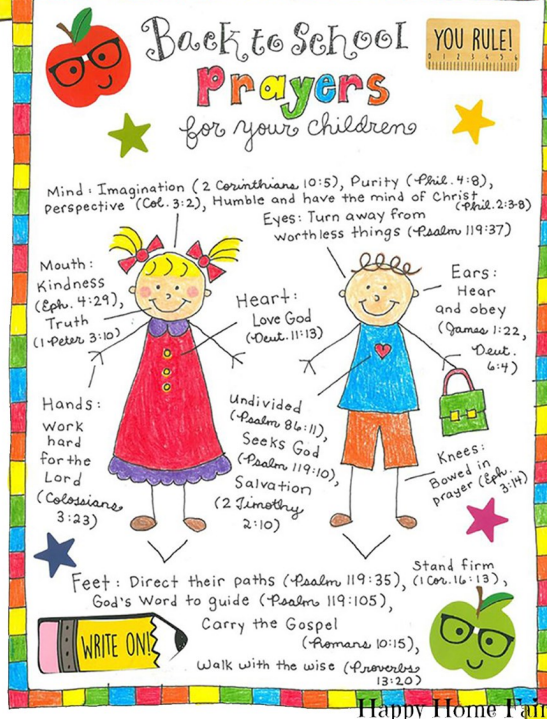 Back to School
YOU RULE!
0 1 2 3 4 5 6
Prayers
for your children
Mind: Imagination (2 Corinthians 10:5), Purity (Phil. 4:8),
Perspective (Col. 3:2), Humble and have the mind of Christ
(Phil. 2:3-8)
Eyes: Turn away from
worthless things (Psalm 119:37)
Mouth:
Kindness
(Eph. 4:29),
Truth
(1 Peter 3:10)
Heart:
Love God
(Deut. 11:13)
Ears:
Hear
and obey
(James 1:22,
Deut.
6:4)
Hands:
Work
hard
for the
Lord
(Colossians
3:23)
Undivided
(Psalm 86:11),
Seeks God
(Psalm 119:10),
Salvation
(2 Timothy
2:10)
Knees:
Bowed in
prayer (Eph.
3:14)
Feet: Direct their paths (Psalm 119:35),
Stand firm
(1 Cor. 16:13),
God's Word to guide (Psalm 119:105),
Carry the Gospel
(Romans 10:15),
Walk with the wise (Proverbs
13:20)
WRITE ON!
Happy Home Fair